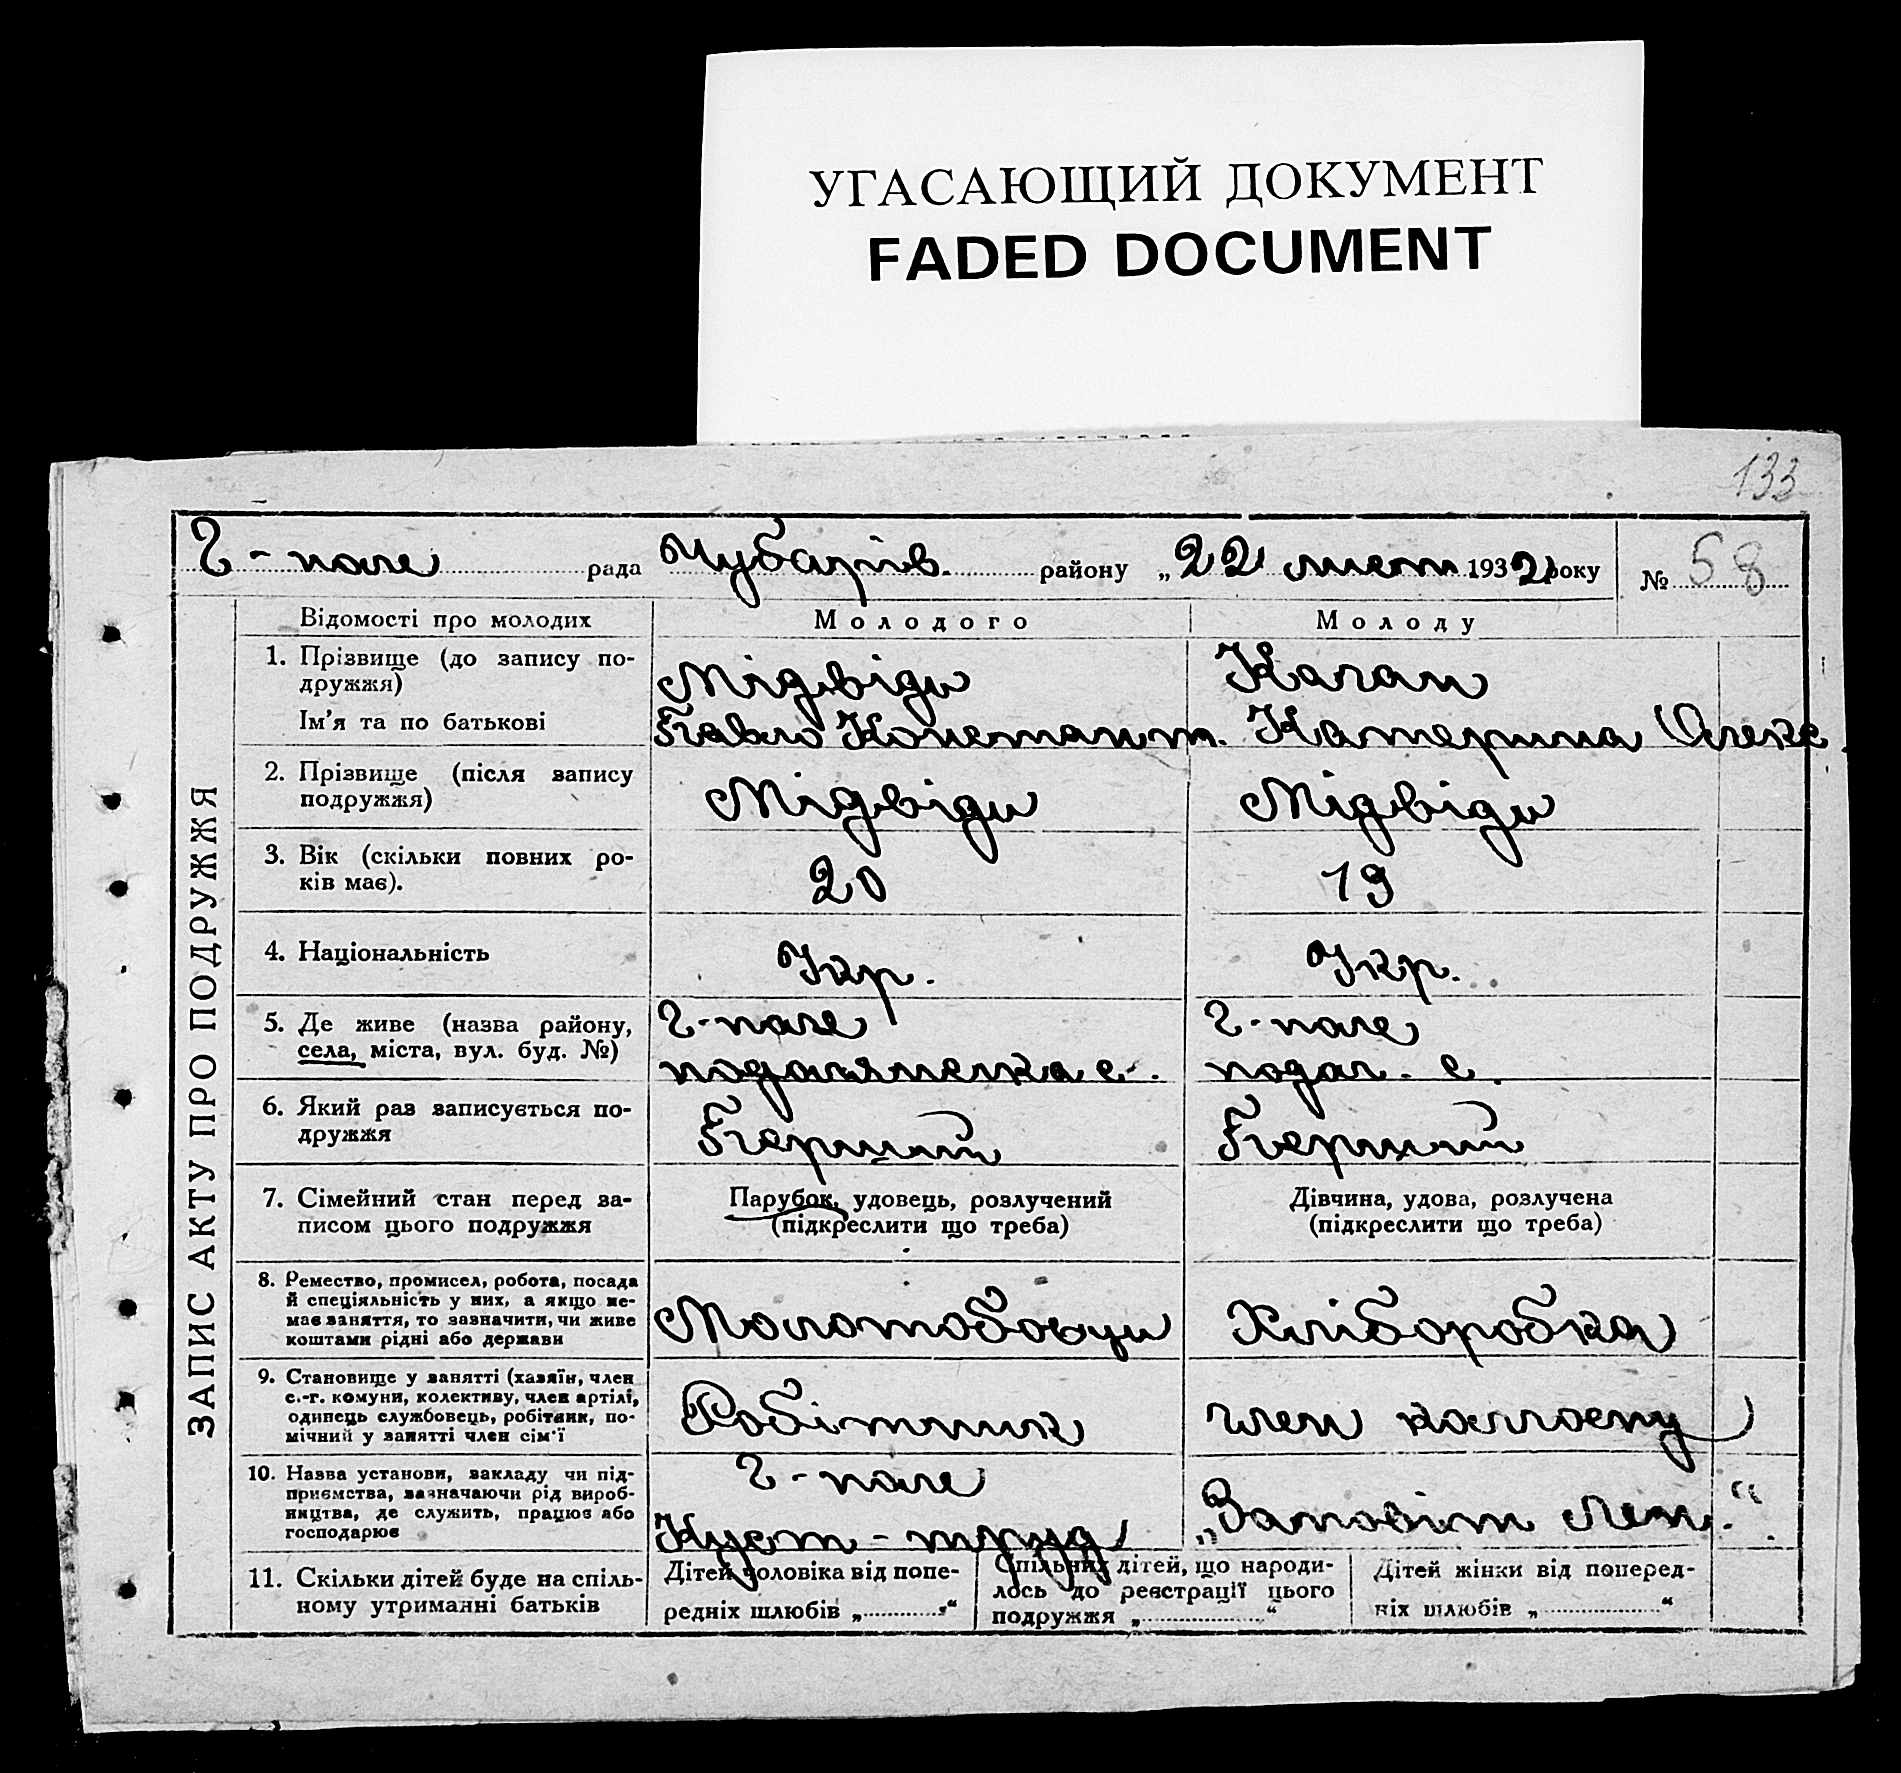 УГАСАЮЩИЙ ДОКУМЕНТ
FADED DOCUMENT
133
Г-поле рада Чубарів. району „22 лист 1932 року № 58
ЗАПИС АКТУ ПРО ПОДРУЖЖЯ
Відомості про молодих Молодого Молоду
1. Прізвище (до запису по-
дружжя)
Мідвідь Каган
Ім'я та по батькові Павло Констант. Катерина Олекс.
2. Прізвище (після запису
подружжя)
Мідвідь Мідвідь
3. Вік (скільки повних ро-
ків має).
20 19
4. Національність Укр. Укр.
5. Де живе (назва району,
села, міста, вул. буд. №)
Г-поле Г-поле
подолянська с. подол. с.
6. Який раз записується по-
дружжя
Перший Перший
7. Сімейний стан перед за-
писом цього подружжя
Парубок, удовець, розлучений
(підкреслити що треба)
Дівчина, удова, розлучена
(підкреслити що треба)
8. Ремество, промисел, робота, посада
й спеціяльність у них, а якщо не-
має заняття, то зазначити, чи живе
коштами рідні або держави
Молотобоець Хліборобка
9. Становище у занятті (хазяїн, член
с.-г. комуни, колективу, член артілі,
одинець службовець, робітник, по-
мічний у занятті член сім'ї
Робітник член колгоспу
10. Назва установи, закладу чи під-
приємства, зазначаючи рід вироб-
ництва, де служить, працює або
господарює
Г-поле
Куст-труд „Заповіт Лен."
11. Скільки дітей буде на спіль-
ному утриманні батьків
Дітей чоловіка від попе-
редніх шлюбів „............"
Спільних дітей, що народи-
лось до реєстрації цього
подружжя „............"
Дітей жінки від поперед-
ніх шлюбів „............"